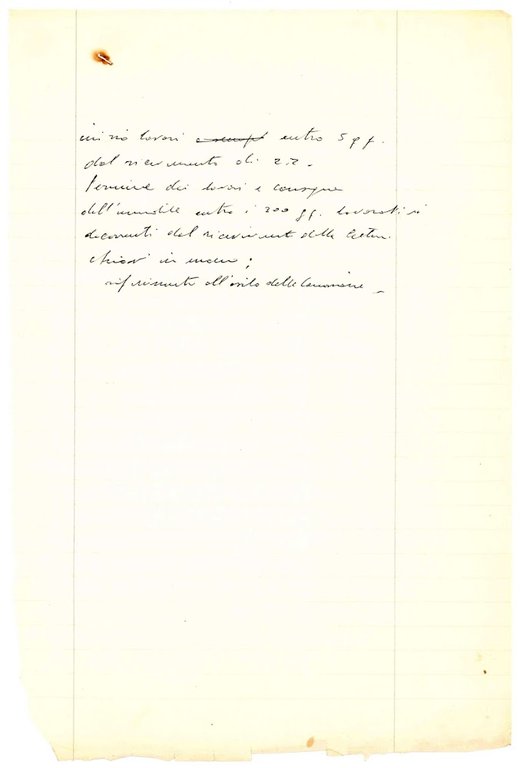 inizio lavori entro 5 gg.
dal ricevimento di
Termine dei lavori e consegna
dell'immobile entro i 200 gg. lavorativi
decorrenti dal ricevimento della lettera.
chiavi in mano;
riferimento all'asilo della